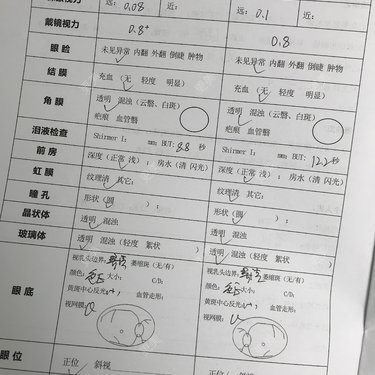 远: 0.08 近: 远: 0.1 近:
戴镜视力 0.8⁺ 0.8
眼睑 未见异常 内翻 外翻 倒睫 肿物 未见异常 内翻 外翻 倒睫 肿物
结膜 充血 (无 轻度 明显) 充血 (无 轻度 明显)
角膜 透明 混浊 (云翳、白斑) 透明 混浊 (云翳、白斑)
疤痕 血管翳 疤痕 血管翳
泪液检查 Shirmer I: mm; BUT: 8.8 秒 Shirmer I: mm; BUT: 12.2 秒
前房 深度 (正常 浅); 房水 (清 闪光) 深度 (正常 浅); 房水 (清 闪光)
虹膜 纹理清 其它: 纹理清 其它:
瞳孔 形状 (圆 ) 形状 (圆 )
晶状体 透明 混浊 透明 混浊
玻璃体 透明 混浊 (轻度 絮状 ) 透明 混浊 (轻度 絮状 )
眼底 视乳头边界: 萎缩斑 (无/有) 视乳头边界: 萎缩斑 (无/有)
颜色: 大小: C/D: 颜色: 大小: C/D:
黄斑中心反光 血管走形: 黄斑中心反光 血管走形:
视网膜: 视网膜:
眼位 正位 斜视 正位 斜视